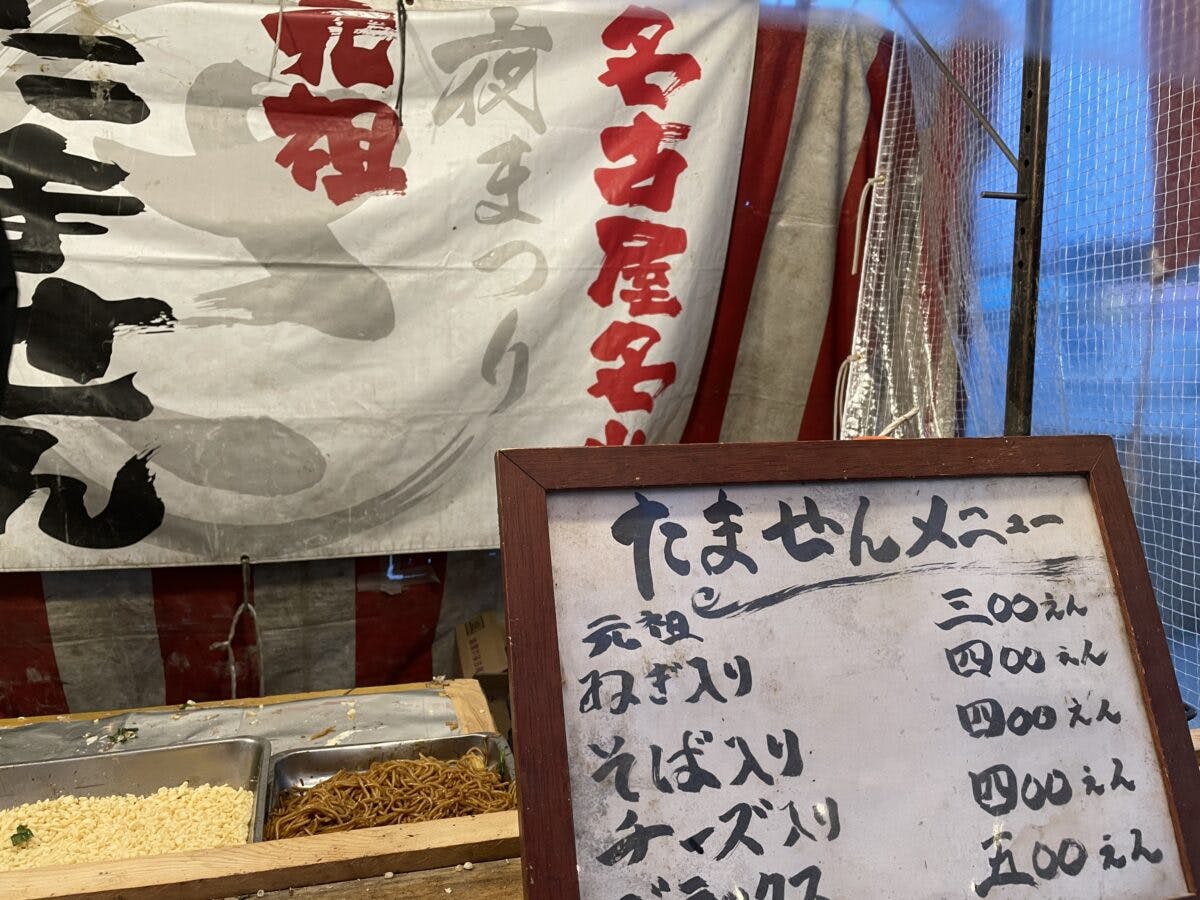 名古屋名
夜まつり
元祖
たません
たませんメニュー
元祖 三00えん
ねぎ入り 四00えん
そば入り 四00えん
チーズ入り 四00えん
デラックス 五00えん